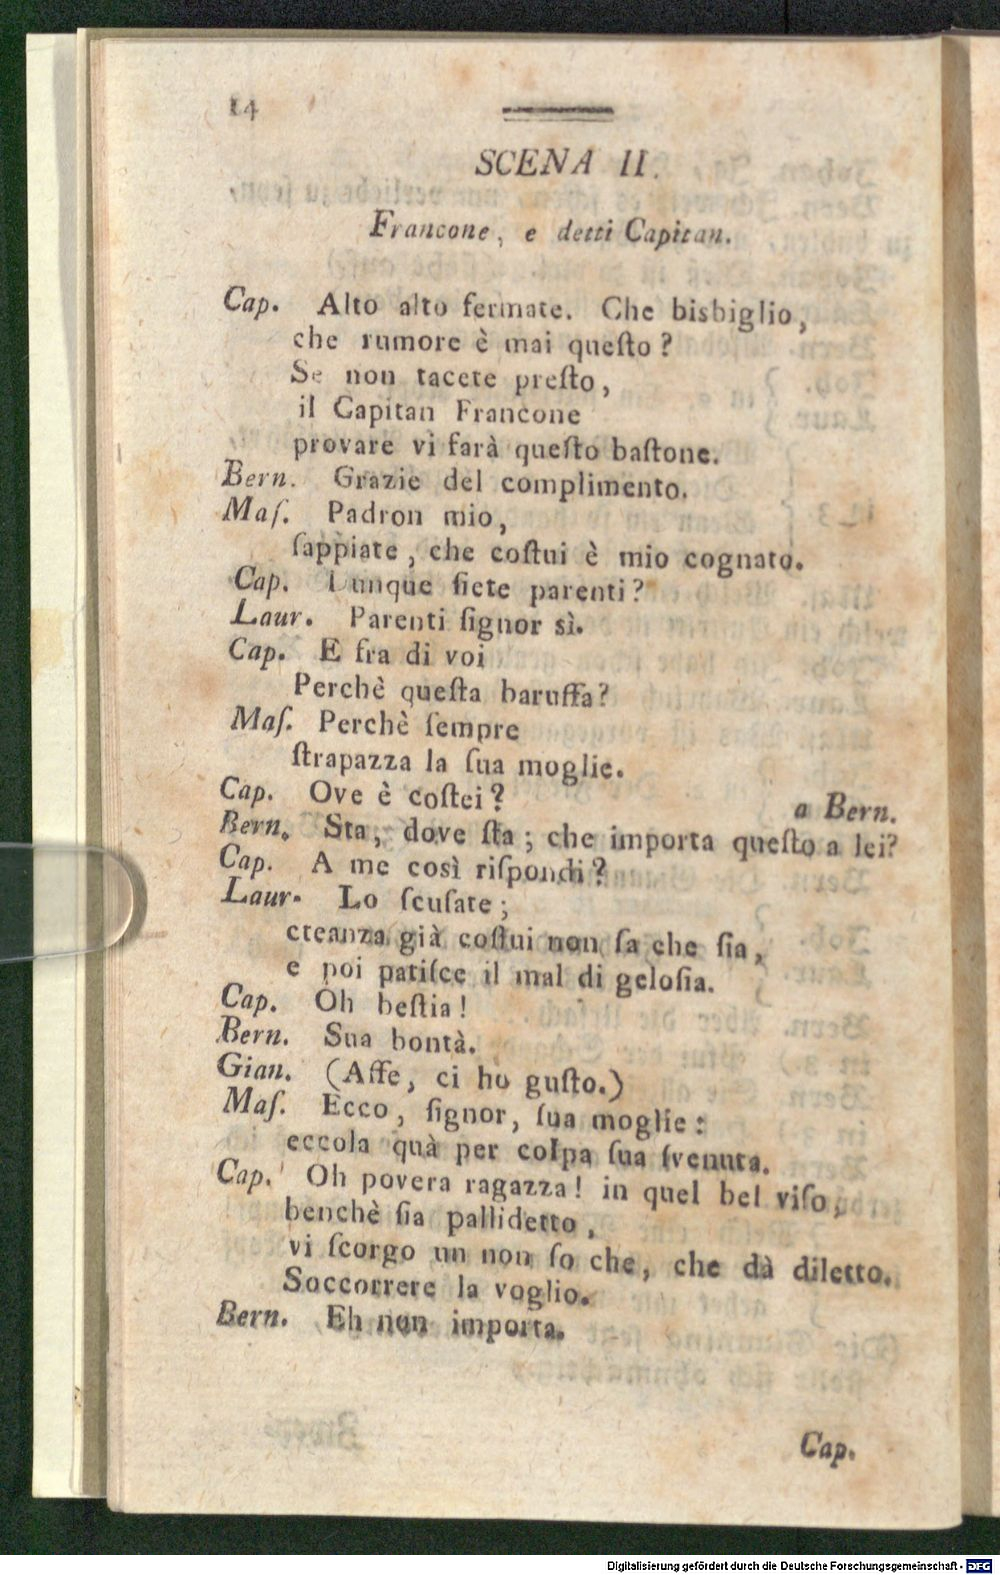 14
SCENA II.
Francone, e detti Capitan.
Cap. Alto alto fermate. Che bisbiglio,
che rumore è mai queſto?
Se non tacete preſto,
il Capitan Francone
provare vi farà queſto baſtone.
Bern. Grazie del complimento.
Maſ. Padron mio,
ſappiate, che coſtui è mio cognato.
Cap. Dunque ſiete parenti?
Laur. Parenti ſignor sì.
Cap. E fra di voi
Perchè queſta baruffa?
Maſ. Perchè ſempre
ſtrapazza la ſua moglie.
Cap. Ove è coſtei?
a Bern.
Bern. Sta, dove ſta; che importa queſto a lei?
Cap. A me così riſpondi?
Laur. Lo ſcuſate;
creanza già coſtui non ſa che ſia,
e poi patiſce il mal di geloſia.
Cap. Oh beſtia!
Bern. Sua bontà.
Gian. (Affe, ci ho guſto.)
Maſ. Ecco, ſignor, ſua moglie:
eccola quà per colpa ſua ſvenuta.
Cap. Oh povera ragazza! in quel bel viſo,
benchè ſia pallidetto,
vi ſcorgo un non ſo che, che dà diletto.
Soccorrere la voglio.
Bern. Eh non importa.
Cap.
Digitalisierung gefördert durch die Deutsche Forschungsgemeinschaft - DFG